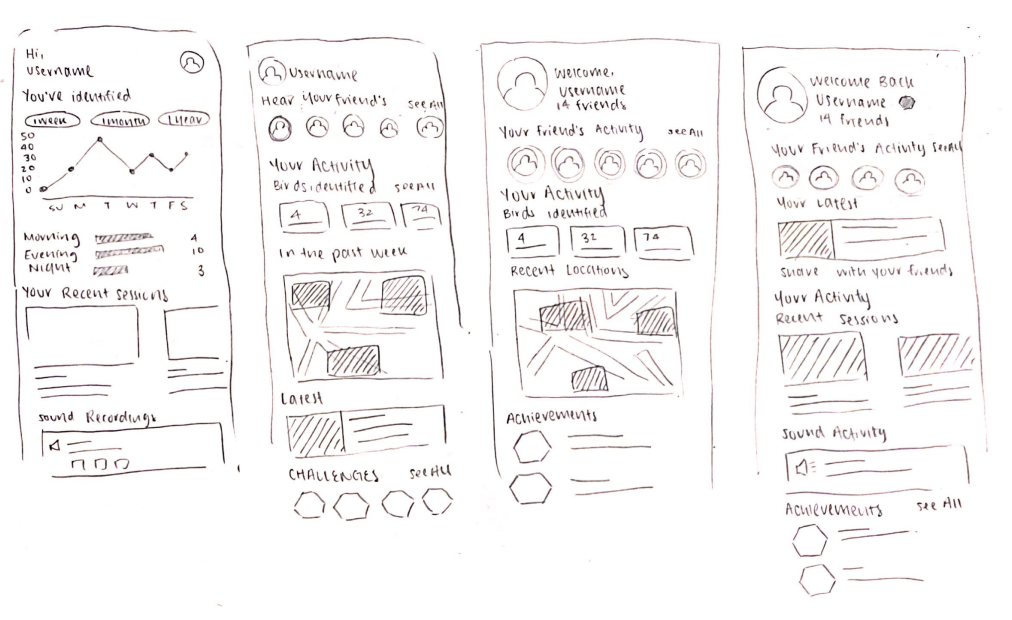 Hi,
username
You've identified
1 week 1 month 1 year
50
40
30
20
10
0
SU M T W T F S
Morning 4
Evening 10
Night 3
Your Recent Sessions
Sound Recordings
Username
Hear Your Friend's See All
Your Activity
Birds identified see All
4 32 74
In the past week
Latest
CHALLENGES see All
Welcome,
Username
14 friends
Your Friend's Activity see All
Your Activity
Birds identified
4 32 74
Recent Locations
Achievements
Welcome Back
Username
14 friends
Your Friend's Activity See All
Your Latest
Share with your friends
Your Activity
Recent Sessions
Sound Activity
Achievements see All